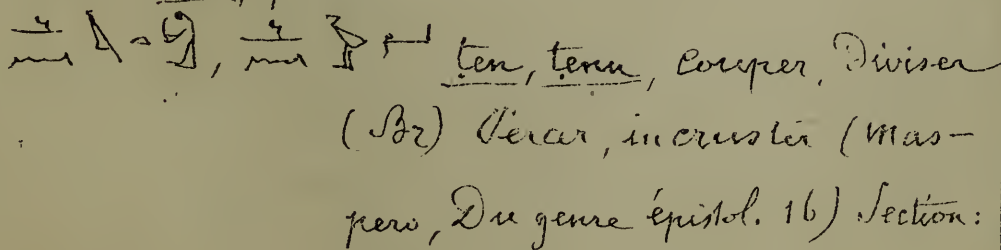 ten, tenu, couper, Diviser
(Br) incruster (Mas-
pero, Du genre épistol. 16) Section: